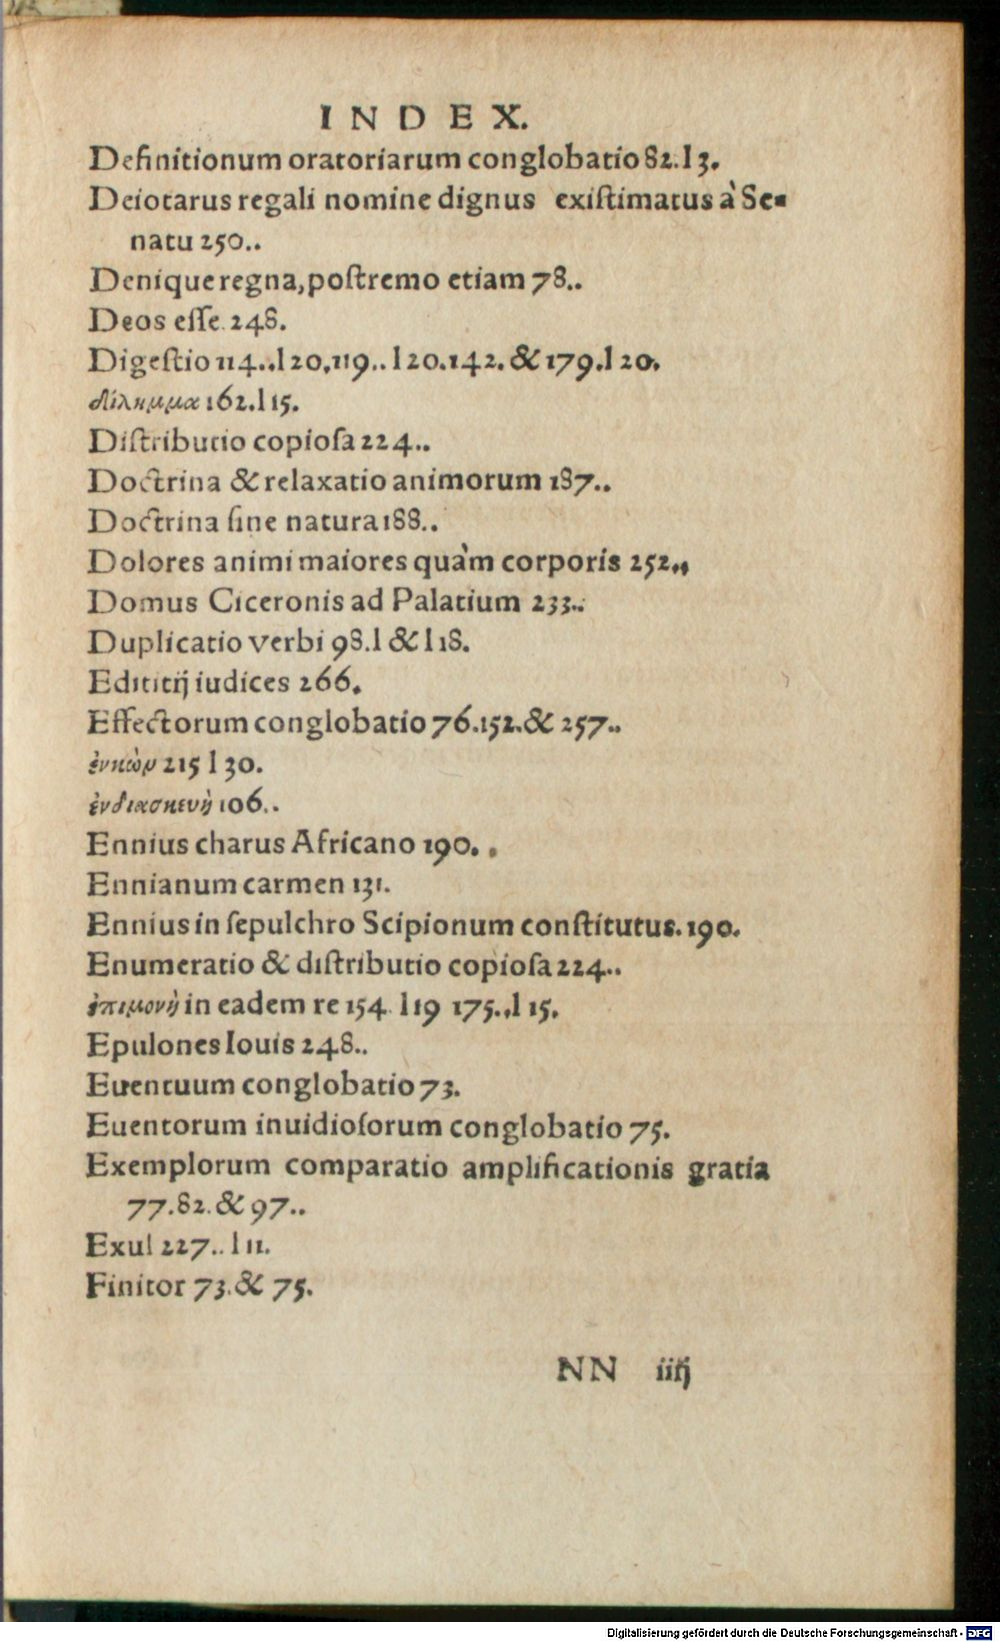 INDEX.
Definitionum oratoriarum conglobatio 82.l 3.
Deiotarus regali nomine dignus existimatus à Se-
natu 250..
Denique regna, postremo etiam 78..
Deos esse 248.
Digestio 114..l 20.119..l 20.142. & 179.l 20.
δίλημμα 162.l 15.
Distributio copiosa 224..
Doctrina & relaxatio animorum 187..
Doctrina sine natura 188..
Dolores animi maiores quàm corporis 252..
Domus Ciceronis ad Palatium 233..
Duplicatio verbi 98.l & l 18.
Edititij iudices 266.
Effectorum conglobatio 76.152.& 257..
215 l 30.
ἐνδιασκευὴ 106..
Ennius charus Africano 190..
Ennianum carmen 131.
Ennius in sepulchro Scipionum constitutus. 190.
Enumeratio & distributio copiosa 224..
ἐπιμονὴ in eadem re 154. l 19 175..l 15.
Epulones Iouis 248..
Euentuum conglobatio 73.
Euentorum inuidiosorum conglobatio 75.
Exemplorum comparatio amplificationis gratia
77.82.& 97..
Exul 227..l 11.
Finitor 73.& 75.
NN iiij
Digitalisierung gefördert durch die Deutsche Forschungsgemeinschaft - DFG